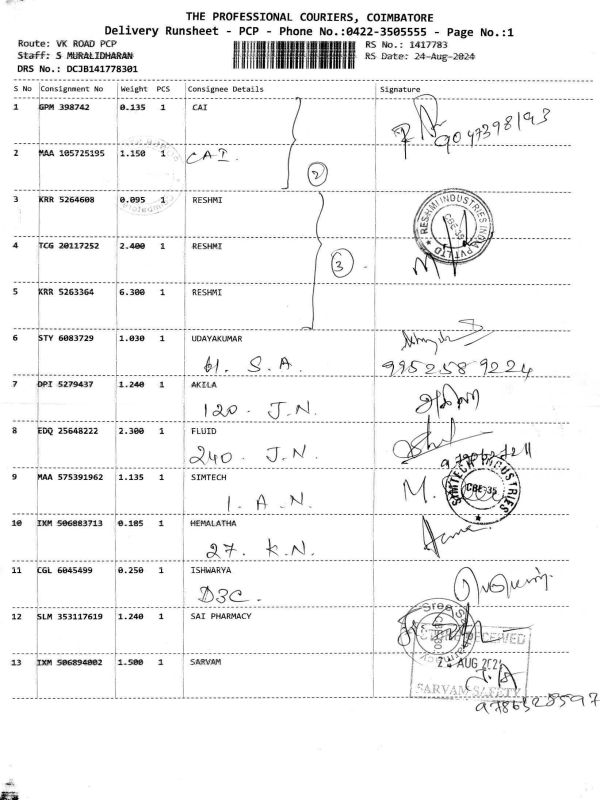 THE PROFESSIONAL COURIERS, COIMBATORE
Delivery Runsheet - PCP - Phone No.:0422-3505555 - Page No.:1
Route: VK ROAD PCP RS No.: 1417783
Staff: S MURALIDHARAN RS Date: 24-Aug-2024
DRS No.: DCJB141778301
S No Consignment No Weight PCS Consignee Details Signature
1 GPM 398742 0.135 1 CAI
9047398193
2 MAA 105725195 1.150 1 CAI.
2
3 KRR 5264608 0.095 1 RESHMI
RESHMI INDUSTRIES INDIA PVT LTD
CBE-35
4 TCG 20117252 2.400 1 RESHMI
3
5 KRR 5263364 6.300 1 RESHMI
6 STY 6083729 1.030 1 UDAYAKUMAR
61. S.A. 9952589224
7 DPI 5279437 1.240 1 AKILA
120. J.N.
8 EDQ 25648222 2.300 1 FLUID
240. J.N.
9 MAA 575391962 1.135 1 SIMTECH
SIMTECH INDUSTRIES
CBE-35
1. A.N.
10 IXM 506883713 0.185 1 HEMALATHA
27. K.N.
11 CGL 6045499 0.250 1 ISHWARYA
D3C.
12 SLM 353117619 1.240 1 SAI PHARMACY
RECEIVED
13 IXM 506894002 1.500 1 SARVAM
AUG 202
SARVAM SAFETY